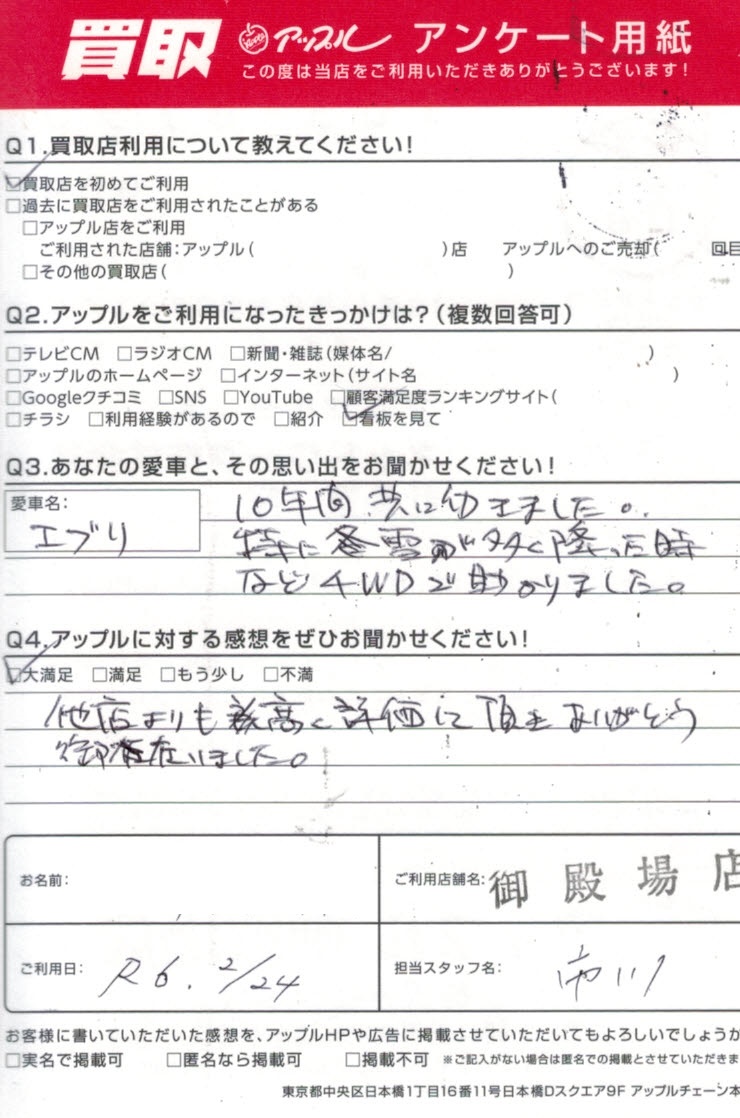 買取 Apple アップル アンケート用紙
この度は当店をご利用いただきありがとうございます！
Q1.買取店利用について教えてください！
☑買取店を初めてご利用
□過去に買取店をご利用されたことがある
□アップル店をご利用
ご利用された店舗：アップル（ ）店 アップルへのご売却（ 回目
□その他の買取店（ ）
Q2.アップルをご利用になったきっかけは？（複数回答可）
□テレビCM □ラジオCM □新聞・雑誌（媒体名/ ）
□アップルのホームページ □インターネット（サイト名 ）
□Googleクチコミ □SNS □YouTube □顧客満足度ランキングサイト（
□チラシ □利用経験があるので □紹介 ☑看板を見て
Q3.あなたの愛車と、その思い出をお聞かせください！
愛車名：
エブリ
10年間共に動きました。
特に冬雪が多く降った時
など4WDで助かりました。
Q4.アップルに対する感想をぜひお聞かせください！
☑大満足 □満足 □もう少し □不満
他店よりも最高に評価して頂きありがとう
御座いました。
お名前：
ご利用店舗名：御殿場店
ご利用日：R6.2/24
担当スタッフ名：市川
お客様に書いていただいた感想を、アップルHPや広告に掲載させていただいてもよろしいでしょうか
□実名で掲載可 □匿名なら掲載可 □掲載不可 ※ご記入がない場合は匿名での掲載とさせていただきま
東京都中央区日本橋1丁目16番11号日本橋Dスクエア9F アップルチェーン本